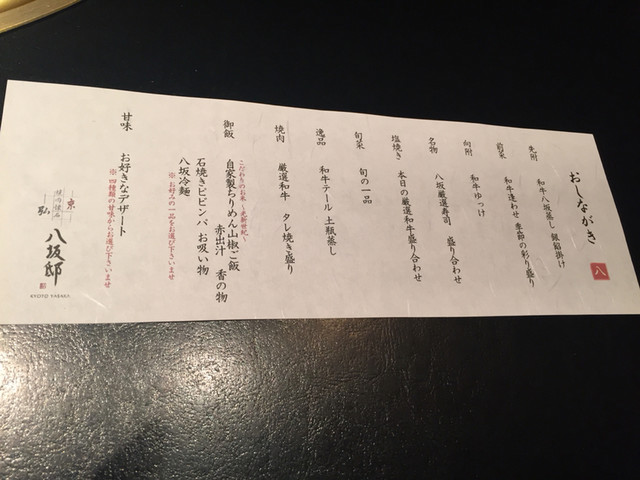 おしながき
八
先附 和牛八坂蒸し 銀餡掛け
前菜 和牛逢わせ 季節の彩り盛り
向附 和牛ゆっけ
名物 八坂厳選寿司 盛り合わせ
塩焼き 本日の厳選和牛盛り合わせ
旬菜 旬の一品
逸品 和牛テール 土瓶蒸し
焼肉 厳選和牛 タレ焼き盛り
こだわりのお米～光新世紀～
御飯 自家製ちりめん山椒ご飯
赤出汁 香の物
石焼きビビンバ お吸い物
八坂冷麺
※ お好みの一品をお選び下さいませ
甘味 お好きなデザート
※ 四種類の甘味からお選び下さいませ
京
焼肉懐石
弘
八坂邸
KYOTO YASAKA